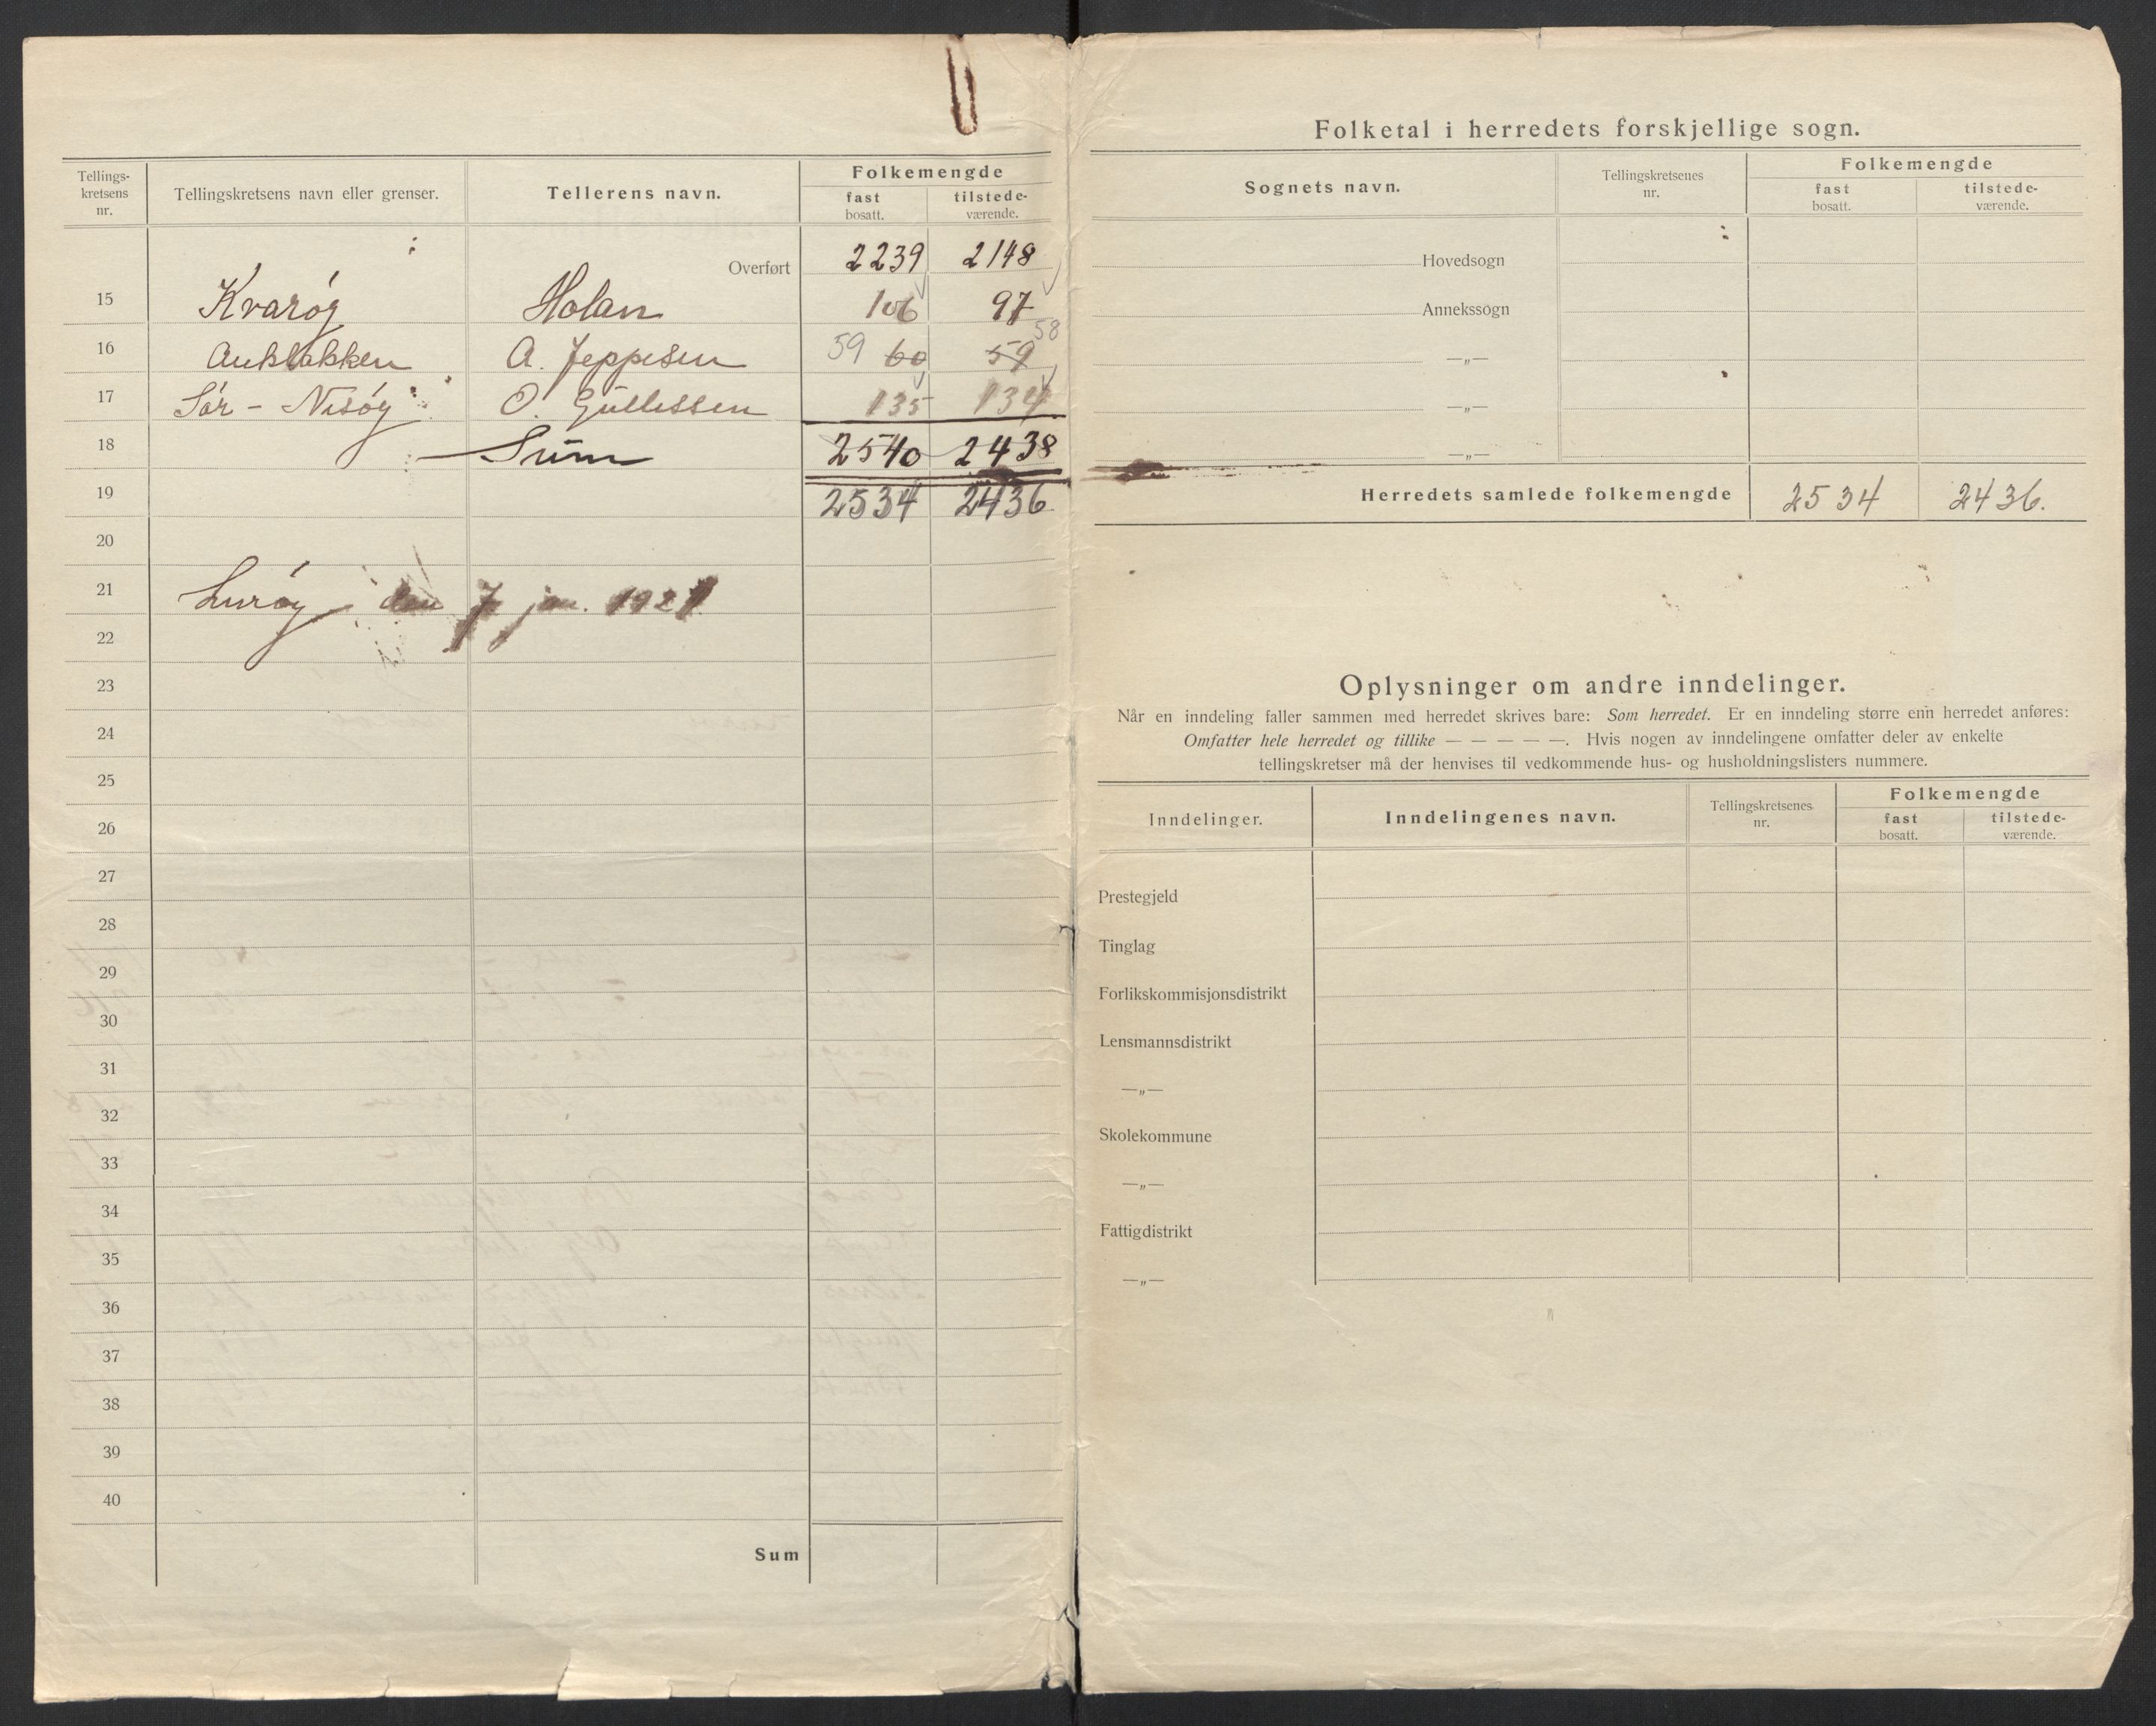 Tellings-
kretsens
nr.
Tellingskretsens navn eller grenser.
Tellerens navn.
Folkemengde
fast
bosatt.
tilstede-
værende.
Overført 2239 2148
15 Kvarøy Holan 106 97
16 A. Jeppesen 59 60 59 58
17 Sør-Nesøy O. Gullessen 135 134
18 Sum 2540 2438
19 2534 2436
20
21 Lurøy den 7 jan. 1921
22
23
24
25
26
27
28
29
30
31
32
33
34
35
36
37
38
39
40
Sum
Folketal i herredets forskjellige sogn.
Sognets navn.
Tellingskretsenes
nr.
Folkemengde
fast
bosatt.
tilstede-
værende.
Hovedsogn
Annekssogn
—„—
—„—
—„—
Herredets samlede folkemengde 2534 2436.
Oplysninger om andre inndelinger.
Når en inndeling faller sammen med herredet skrives bare: Som herredet. Er en inndeling større enn herredet anføres:
Omfatter hele herredet og tillike — — — — —. Hvis nogen av inndelingene omfatter deler av enkelte
tellingskretser må der henvises til vedkommende hus- og husholdningslisters nummere.
Inndelinger.
Inndelingenes navn.
Tellingskretsenes
nr.
Folkemengde
fast
bosatt.
tilstede-
værende.
Prestegjeld
Tinglag
Forlikskommisjonsdistrikt
Lensmannsdistrikt
—„—
Skolekommune
—„—
Fattigdistrikt
—„—